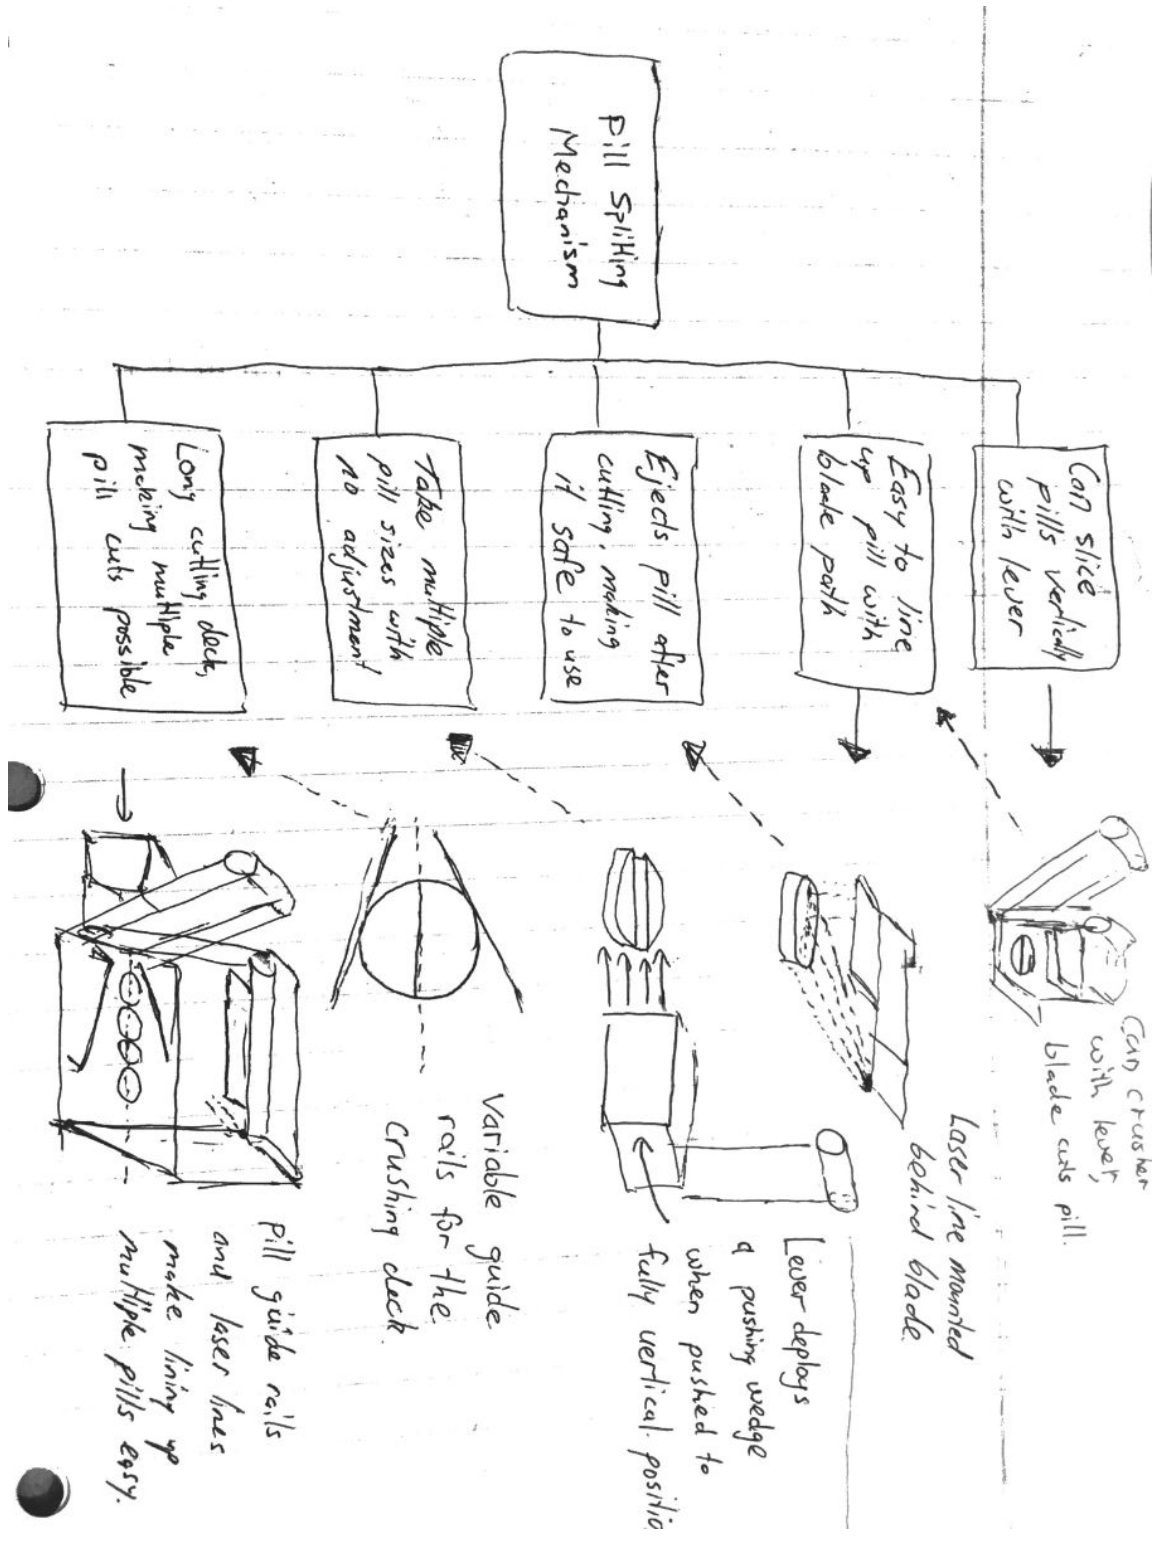 Pill Splitting
Mechanism
Can slice
pills vertically
with lever
Easy to line
up pill with
blade path
Ejects pill after
cutting, making
it safe to use
Take multiple
pill sizes with
no adjustment
Long cutting deck,
making multiple
pill cuts possible
Can crusher
with lever,
blade cuts pill.
Laser line mounted
behind blade.
Lever deploys
a pushing wedge
when pushed to
fully vertical positio
Variable guide
rails for the
crushing deck
Pill guide rails
and laser lines
make lining up
multiple pills easy.